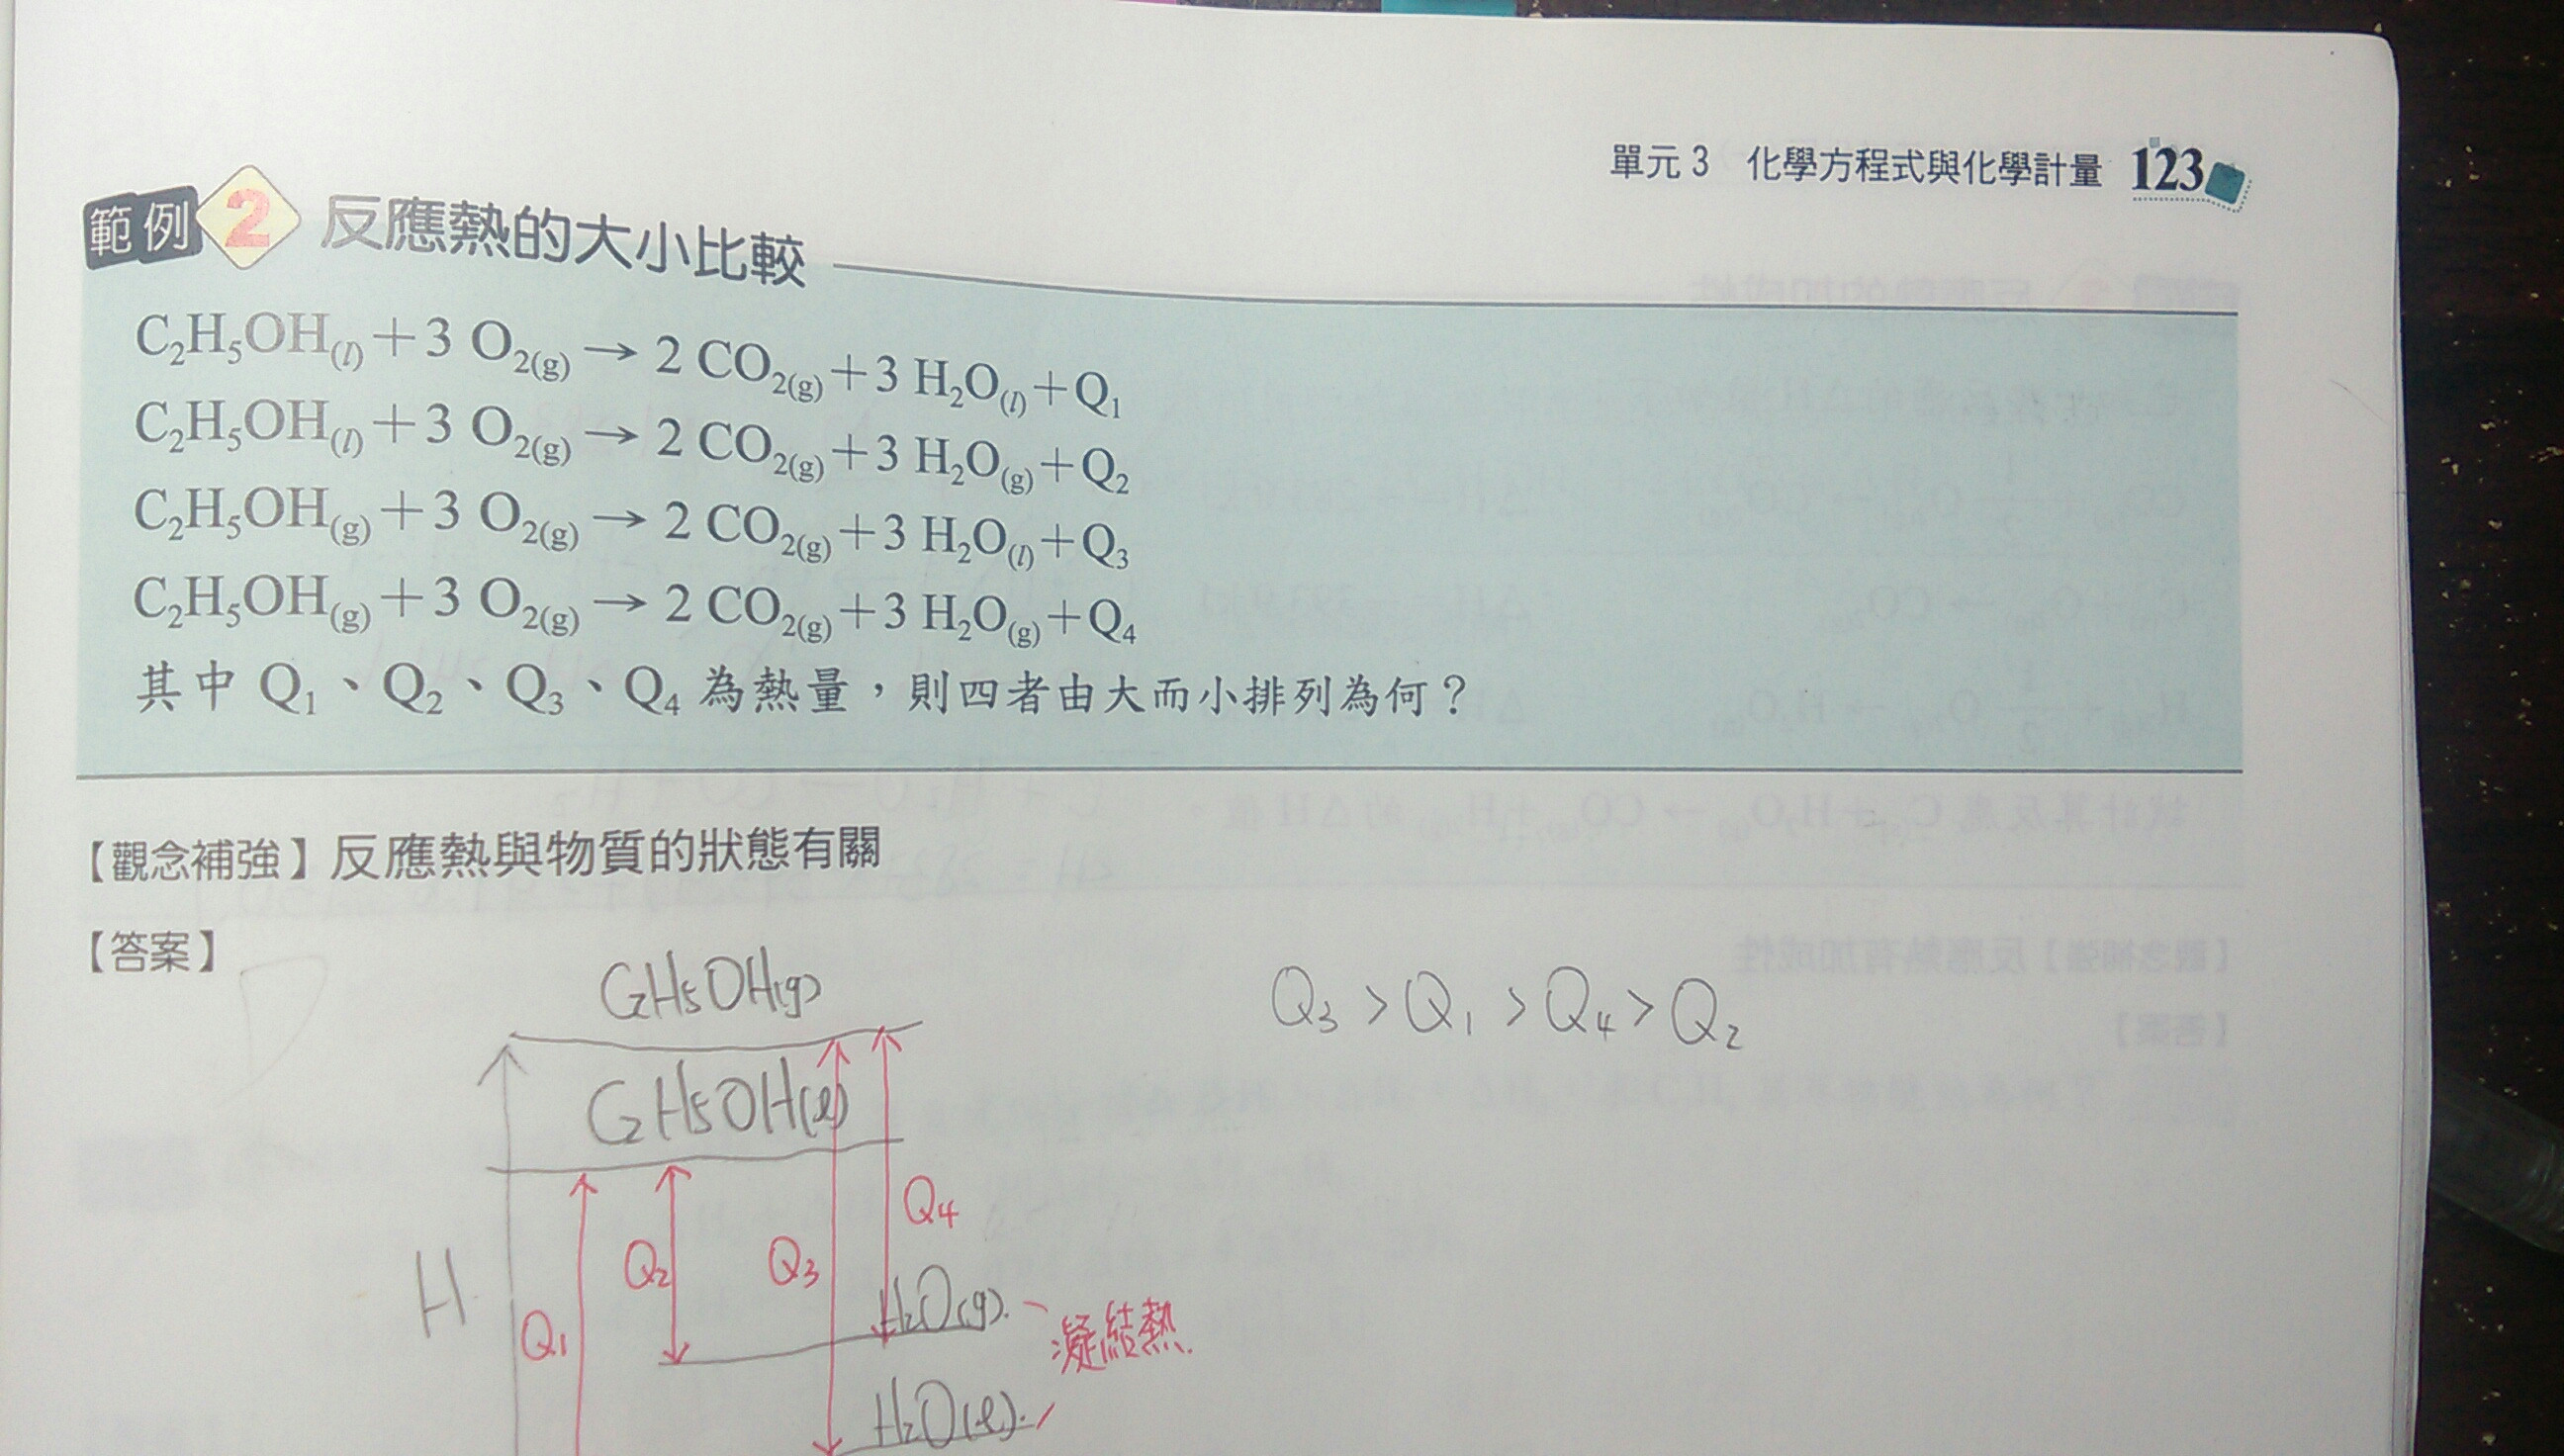 單元 3 化學方程式與化學計量 123
範例 2 反應熱的大小比較
C₂H₅OH(l)+3 O₂(g)→2 CO₂(g)+3 H₂O(l)+Q₁
C₂H₅OH(l)+3 O₂(g)→2 CO₂(g)+3 H₂O(g)+Q₂
C₂H₅OH(g)+3 O₂(g)→2 CO₂(g)+3 H₂O(l)+Q₃
C₂H₅OH(g)+3 O₂(g)→2 CO₂(g)+3 H₂O(g)+Q₄
其中 Q₁、Q₂、Q₃、Q₄ 為熱量，則四者由大而小排列為何？
【觀念補強】反應熱與物質的狀態有關
【答案】
C₂H₅OH(g)
Q₃>Q₁>Q₄>Q₂
C₂H₅OH(l)
Q₄
H
Q₂
Q₃
Q₁
H₂O(g)
凝結熱
H₂O(l)